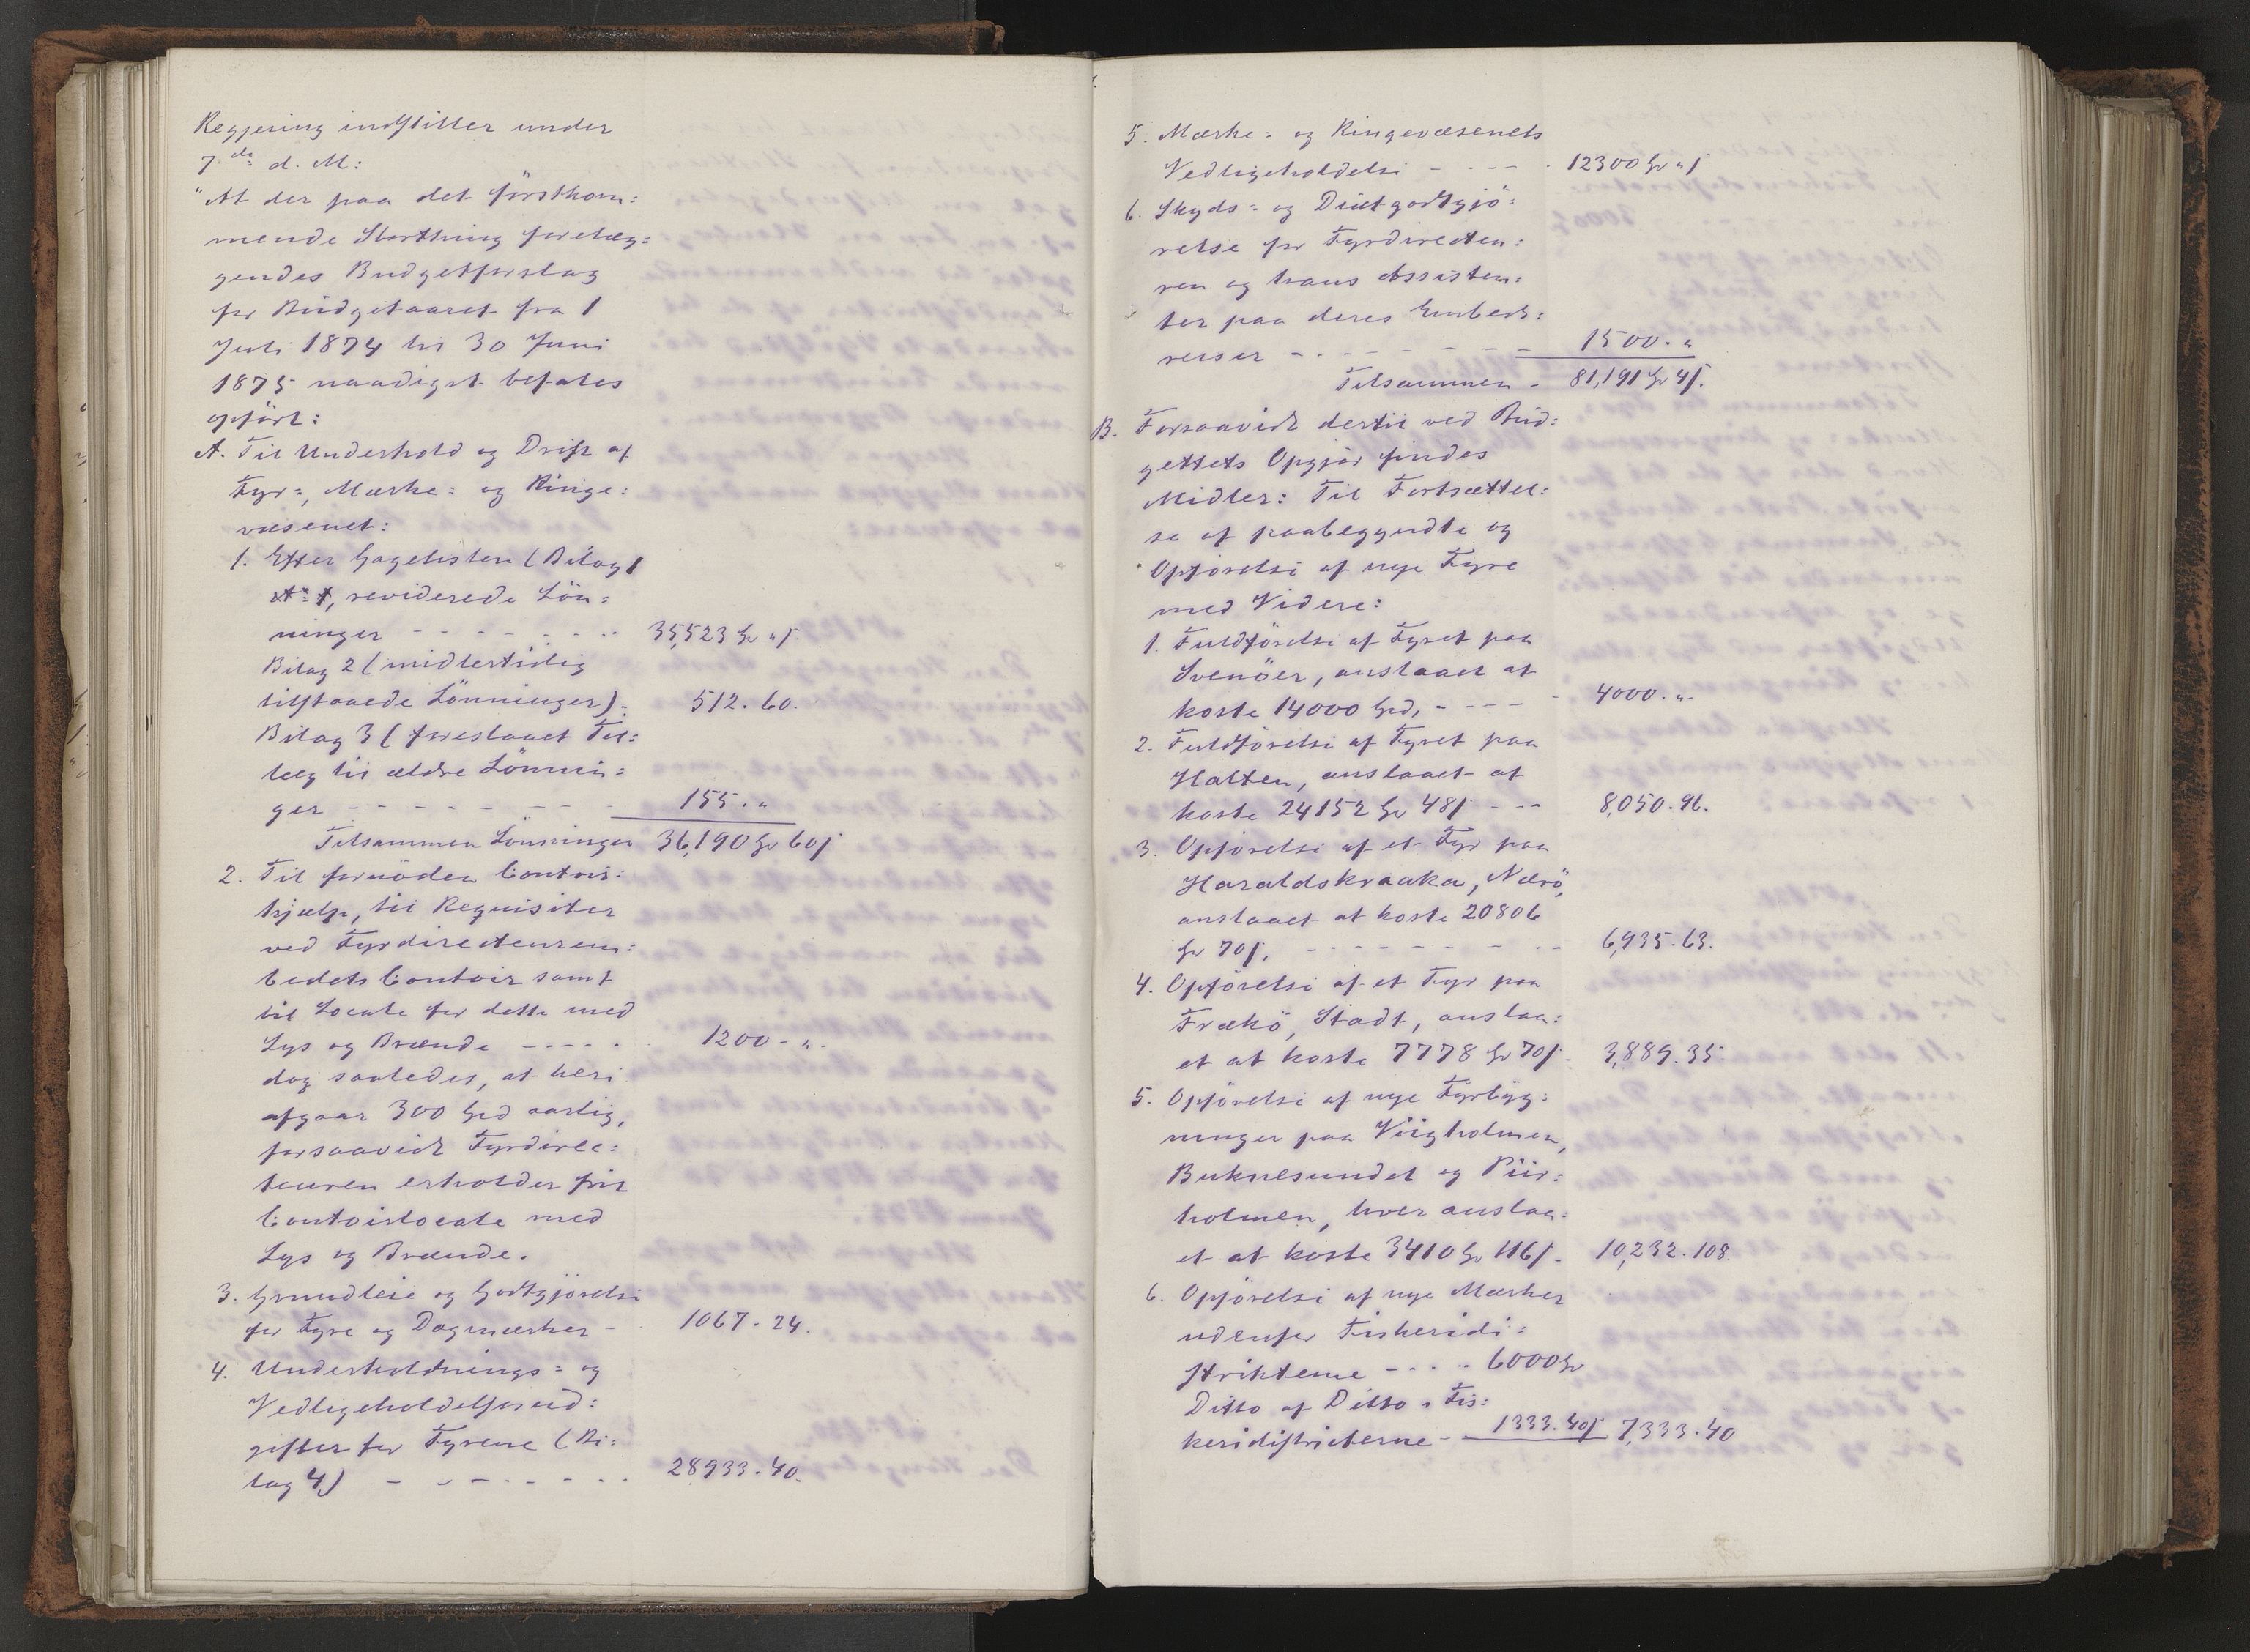 Regjering indstiller under
7de d. M:
"At der paa det førstkom=
mende Storthing forelæg=
gendes Budgetforslag
for Budgetaaret fra 1
Juli 1874 til 30 Juni
1875 naadigst befales
opført:
A. Til Underhold og Drift af
Fyr=, Mærke= og Ringe=
væsenet:
1. Efter Gagelisten (Bilag 1
reviderede Løn=
ninger - - - - - - 35,523 Spd " ß.
Bilag 2 (midlertidig
tilstaaede Lønninger) - 512. 60.
Bilag 3 (foreslaaet Til=
læg til ældre Lønnin=
ger - - - - - - - 155. "
Tilsammen Lønninger 36,190 Spd 60 ß
2. Til fornøden Contoir=
hjælp, til Requisiter
ved Fyrdirecteurem=
bedets Contoir samt
til Locale for dette med
Lys og Brænde - - - - 1200 - ".
dog saaledes, at heri
afgaar 300 Spd aarlig,
forsaavidt Fyrdirec=
teuren erholder frit
Contoirlocale med
Lys og Brænde.
3. Grundleie og Godtgjørelse
for Fyre og Dagmærker - 1067. 24.
4. Underholdnings= og
Vedligeholdelsesud=
gifter for Fyrene (Bi=
lag 4) - - - - - - - 28933. 40.
5. Mærke= og Ringevæsenets
Vedligeholdelse - - - - 12300 Spd " ß
6. Skyds= og Diætgodtgjø=
relse for Fyrdirecteu=
ren og hans Assisten=
ter paa deres Embeds=
reiser - - - - - - - 1500. "
Tilsammen - 81,191 Spd 4 ß.
B. Forsaavidt dertil ved Bud=
gettets Opgjør findes
Midler: Til Fortsættel=
se af paabegyndte og
Opførelse af nye Fyre
med Videre:
1. Fuldførelse af Fyret paa
Svenöer, anslaaet at
koste 14000 Spd, - - - - 4000. ".
2. Fuldførelse af Fyret paa
Halten, anslaaet at
koste 24152 Spd 48 ß - - - 8,050. 96.
3. Opførelse af et Fyr paa
Haraldskraaka, Nærö,
anslaaet at koste 20806
Spd 70 ß, - - - - - - - 6,935. 63.
4. Opførelse af et Fyr paa
Frækö, Stadt, anslaa=
et at koste 7778 Spd 70 ß - 3,889. 35
5. Opførelse af nye Fyrbyg=
ninger paa Viigholmen,
Buknesundet og Piir=
holmen, hver anslaa=
et at koste 3410 Spd 116 ß - 10,232. 108
6. Opførelse af nye Mærker
udenfor Fiskeridi=
strikterne - - - - 6000 Spd
Ditto af Ditto i Fis=
keridistricterne - 1333. 40 ß 7,333. 40